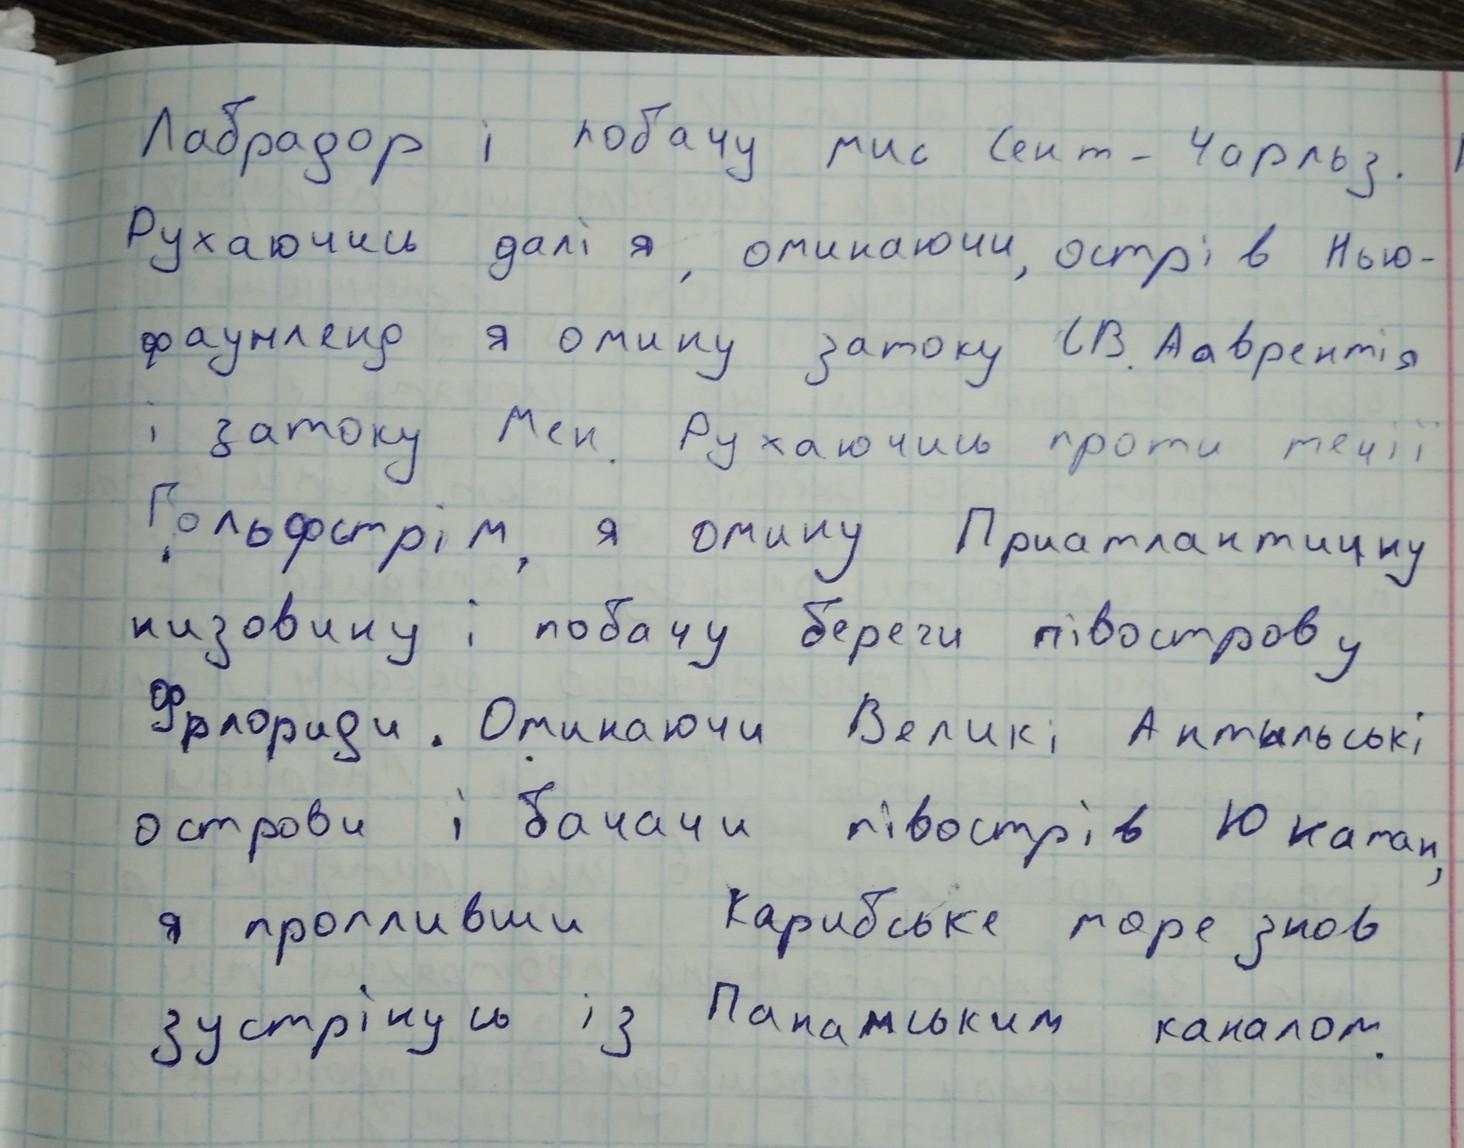 Лабрадор і побачу мис Сент-Чарльз.
Рухаючись далі я, оминаючи, острів Нью-
фаунленд я омину затоку Св. Лаврентія
і затоку Мен. Рухаючись проти течії
Гольфстрім, я омину Приатлантичну
низовину і побачу береги півострову
Флориди. Оминаючи Великі Антильські
острови і бачачи півострів Юкатан,
я пропливши Карибське море знов
зустрінусь із Панамським каналом.